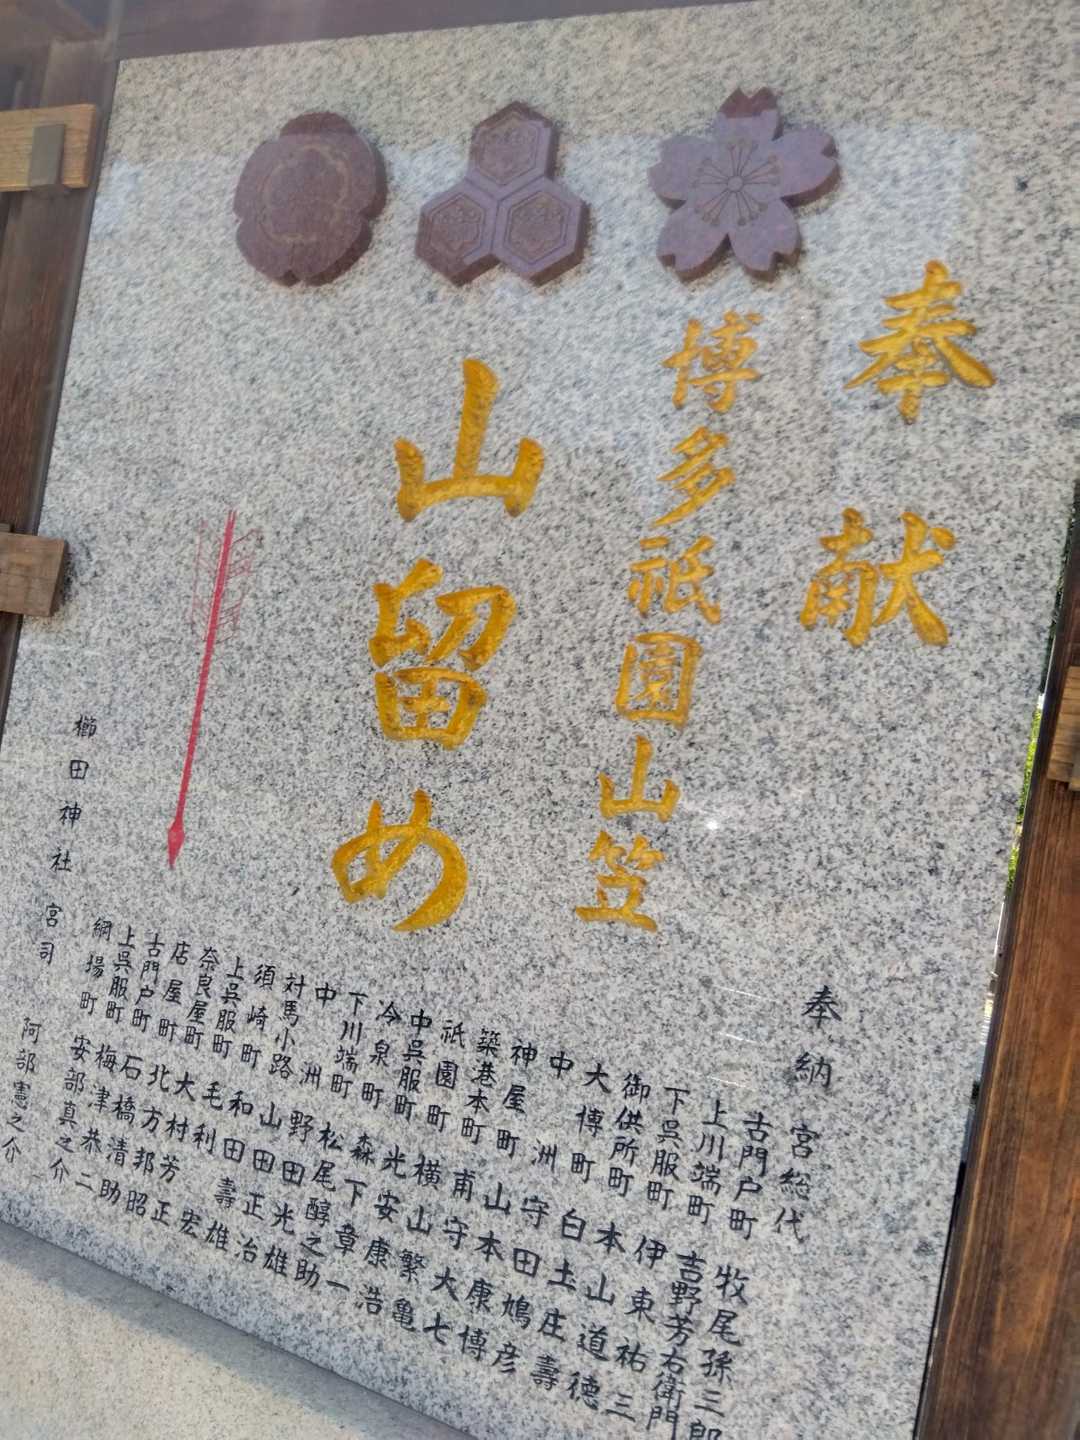 奉献
博多祇園山笠
山留め
奉納 宮総代
古門戸町 牧尾孫三郎
上川端町 吉野芳右衛門
下呉服町 伊東祐三
御供所町 本山道徳
大博町 白土庄壽
中洲 守田鳩彦
神屋町 山本康博
築港本町 甫守大七
祇園町 横山繁亀
中呉服町 光安康浩
冷泉町 森下章一
下川端町 松尾醇之助
中洲 野田光雄
対馬小路 山田正治
須崎町 和田壽雄
上呉服町 毛利宏
奈良屋町 大村芳正
店屋町 北方邦昭
古門戸町 石橋清助
上呉服町 梅津恭二
綱場町 安部真之介
櫛田神社 宮司 阿部憲之介